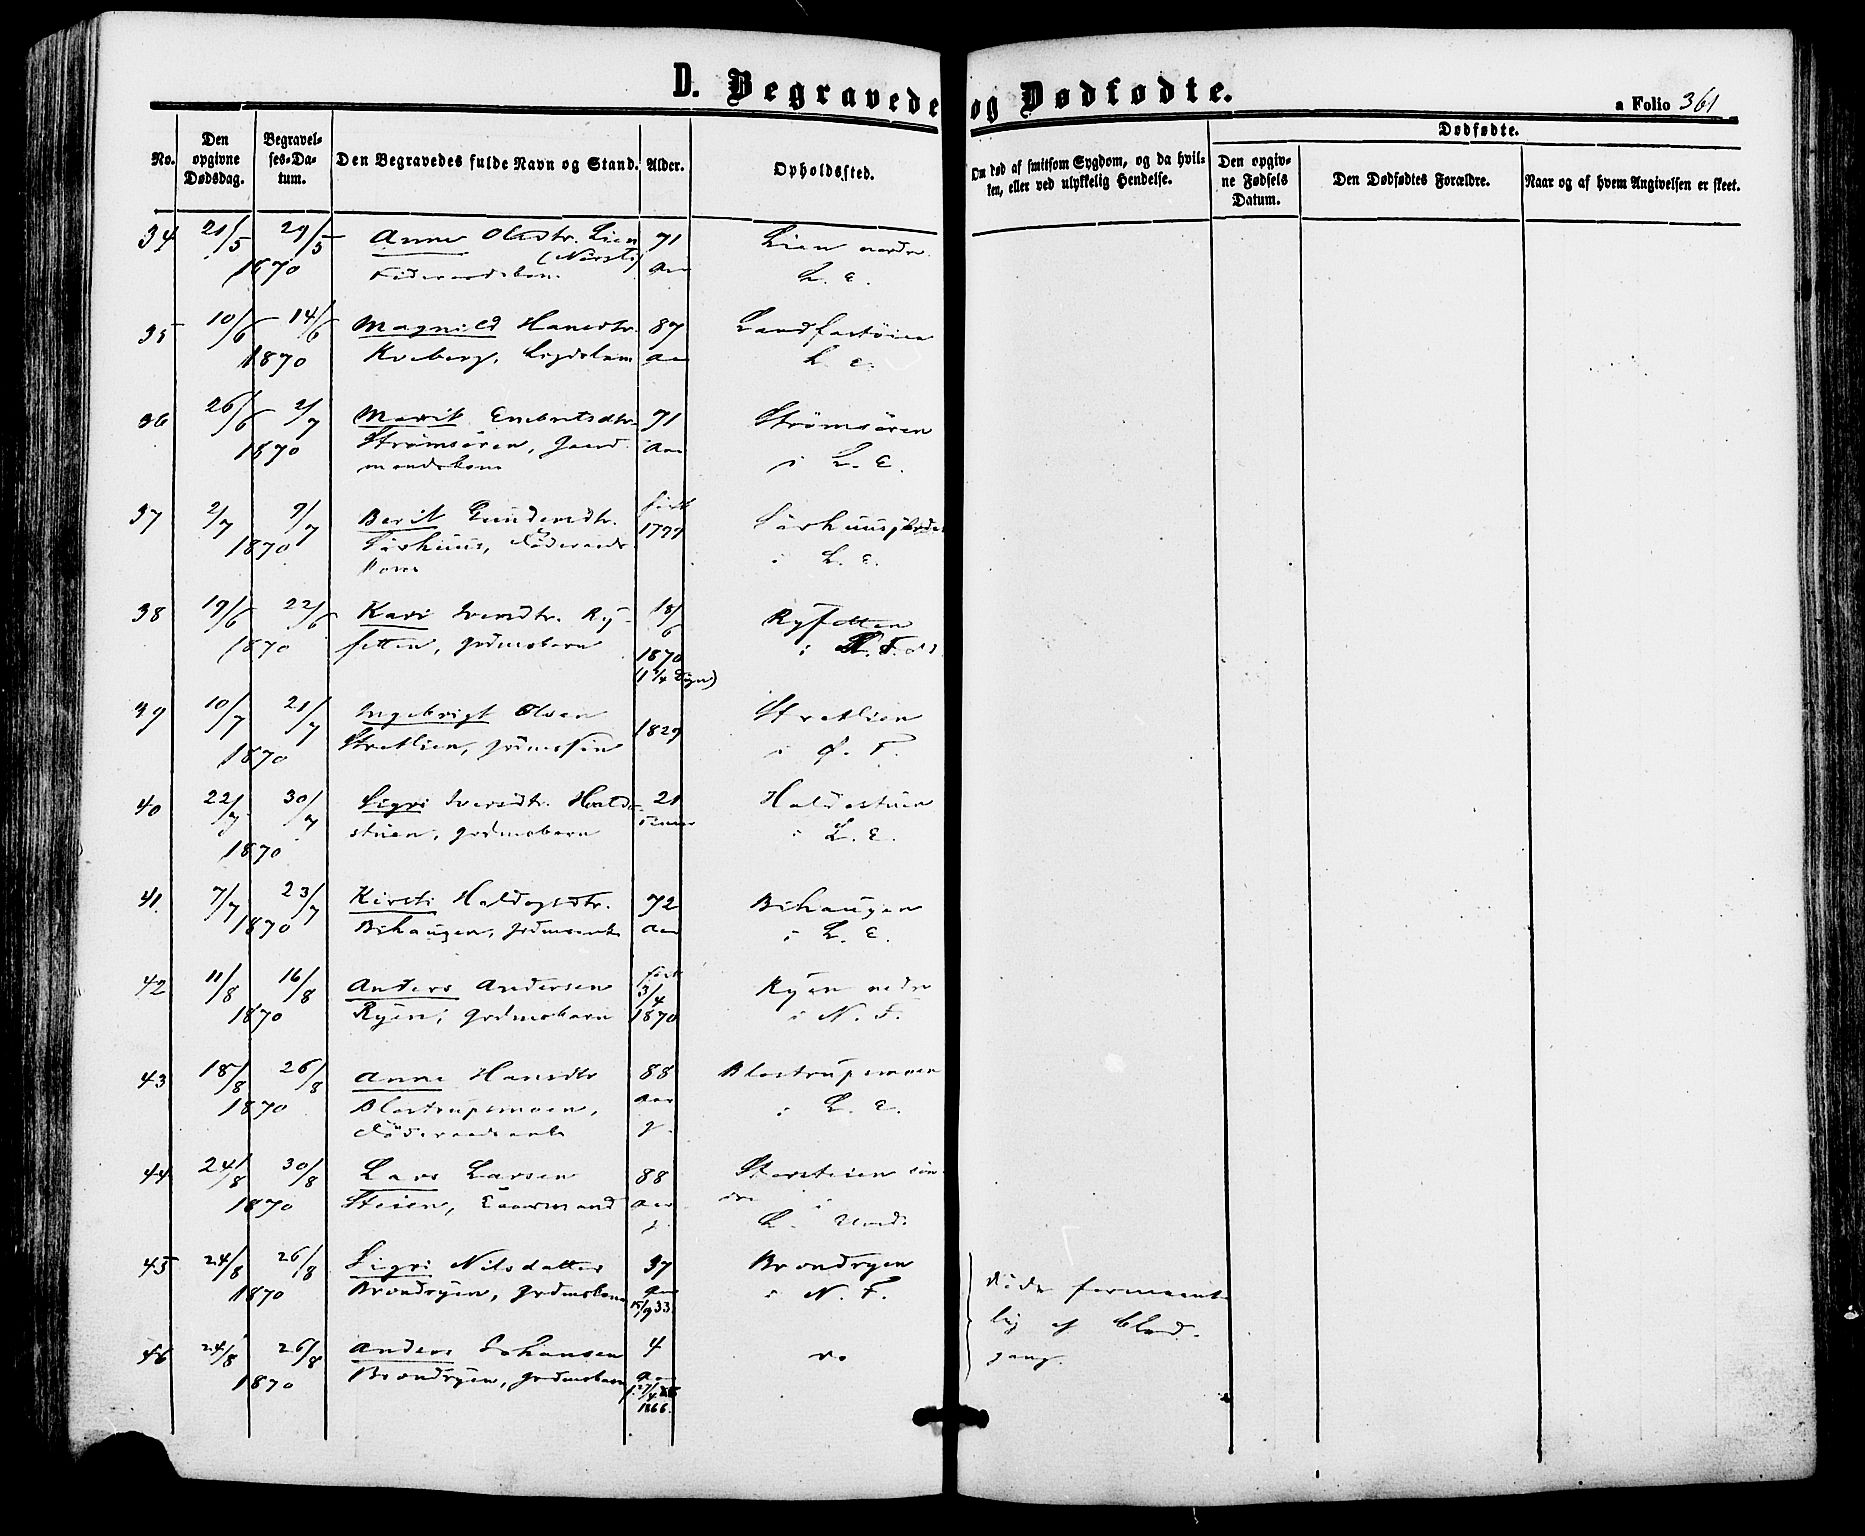 D. Begravede og Dødfødte.
a Folio 361
No.
Den opgivne Dødsdag.
Begravelses-Datum.
Den Begravedes fulde Navn og Stand.
Alder.
Opholdssted.
Om død af smitsom Sygdom, og da hvilken, eller ved ulykkelig Hendelse.
Dødfødte.
Den opgivne Fødsels Datum.
Den Dødfødtes Forældre.
Naar og af hvem Angivelsen er skeet.
34 21/5 29/5 Anne Olsdtr. Lien 71 Lien nordre
1870 (Nørsti) aar L. E.
35 10/6 14/6 Magnild Hansdtr. 87
1870 Kveberg, Lægdslem aar L. E.
36 26/6 2/7 Marit Embretsdtr. 71 Strømsøren
1870 Strømsøren, gaard aar i L. E.
mandskone
37 2/7 9/7 Berit født
1870 i L. E.
38 19/6 22/6 Kari 18/6 Ryfetten
1870 fetten, grdmsbarn 1870 i
39 10/7 21/7 Ingebrigt Olsen 1829 Stretlien
1870 Stretlien, i Ø. F.
40 22/7 30/7 Sigri Iversdtr. Halde- 21 Haldostuen
1870 stuen, grdmsbarn Timer i L. E.
41 7/7 23/7 Kirsti Haldosdtr. 72 Bihaugen
1870 Bihaugen, grdmsenke aar i L. E.
42 11/8 16/8 Anders Andersen født 3/4 Ryen nedre
1870 Ryen, grdmsbarn 1870 i N. F.
43 18/8 26/8 Anne Hansdtr 88 Blostrupmoen
1870 Blostrupmoen, aar i L. E.
Føderaadsenke g.
44 24/8 30/8 Lars Larsen 88 Storsteien søn
1870 Steien, aar dre i
g. L. Und.
45 24/8 26/8 Sigri Nilsdatter 37 Brondryen
1870 Brondryen, grdmskone aar i N. F.
15/9 33
døde formeent
lig af blod-
gang.
46 24/8 26/8 Anders Johansen 4 do
1870 Brondryen, grdmsbarn aar
1866.